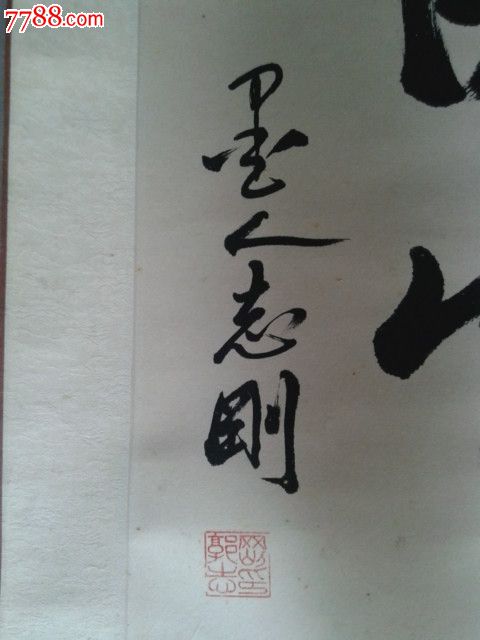 7788.com
墨人志剛
郭志剛印